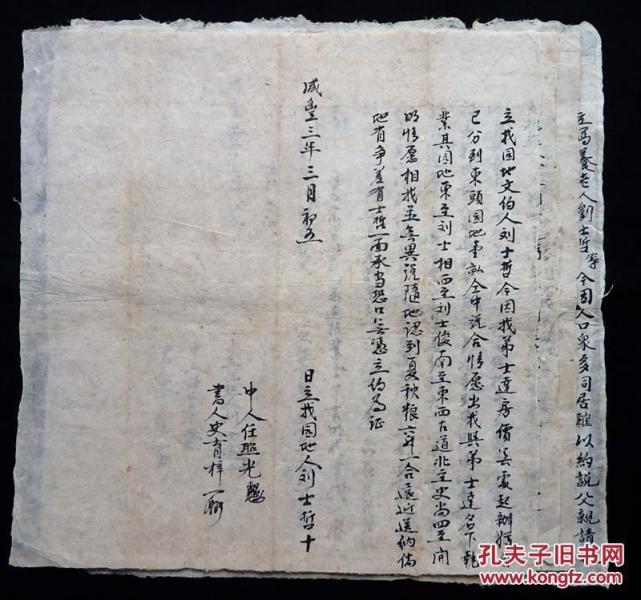 立寫養老人劉士哲等今因人口衆多同居難以約説父親請
立找园地文约人刘士哲今因找弟士達房價無處起辦將
已分到東頭园地壹畝仝中说合情愿出找與弟士達名下耗
業其园地東至刘士相西至刘士俊南至東西古道北至史尚四至開
明情愿相找並無異说隨地認到夏秋粮六年一合遠近送纳倘
地有争差有士哲一面承当恐口無憑立约為证
咸豊三年三月初五
日立找园地人刘士哲十
中人任照光
書人史育梓
孔夫子旧书网
www.kongfz.com